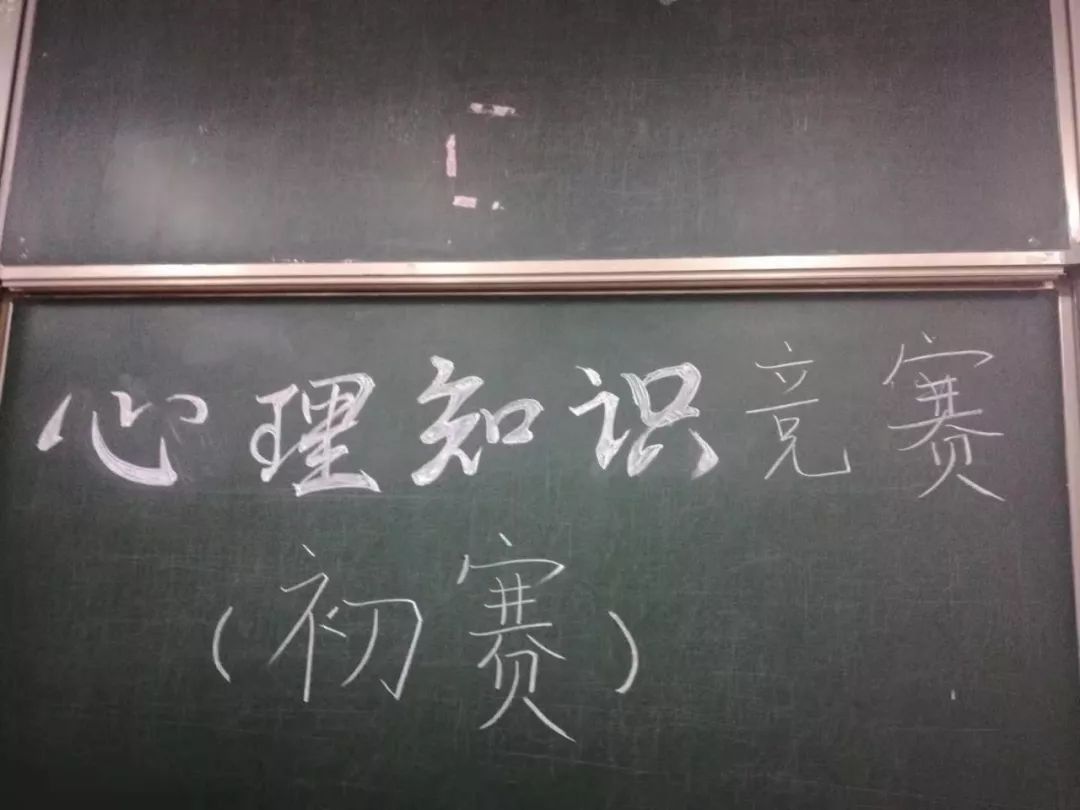 心理知识竞赛
(初赛)